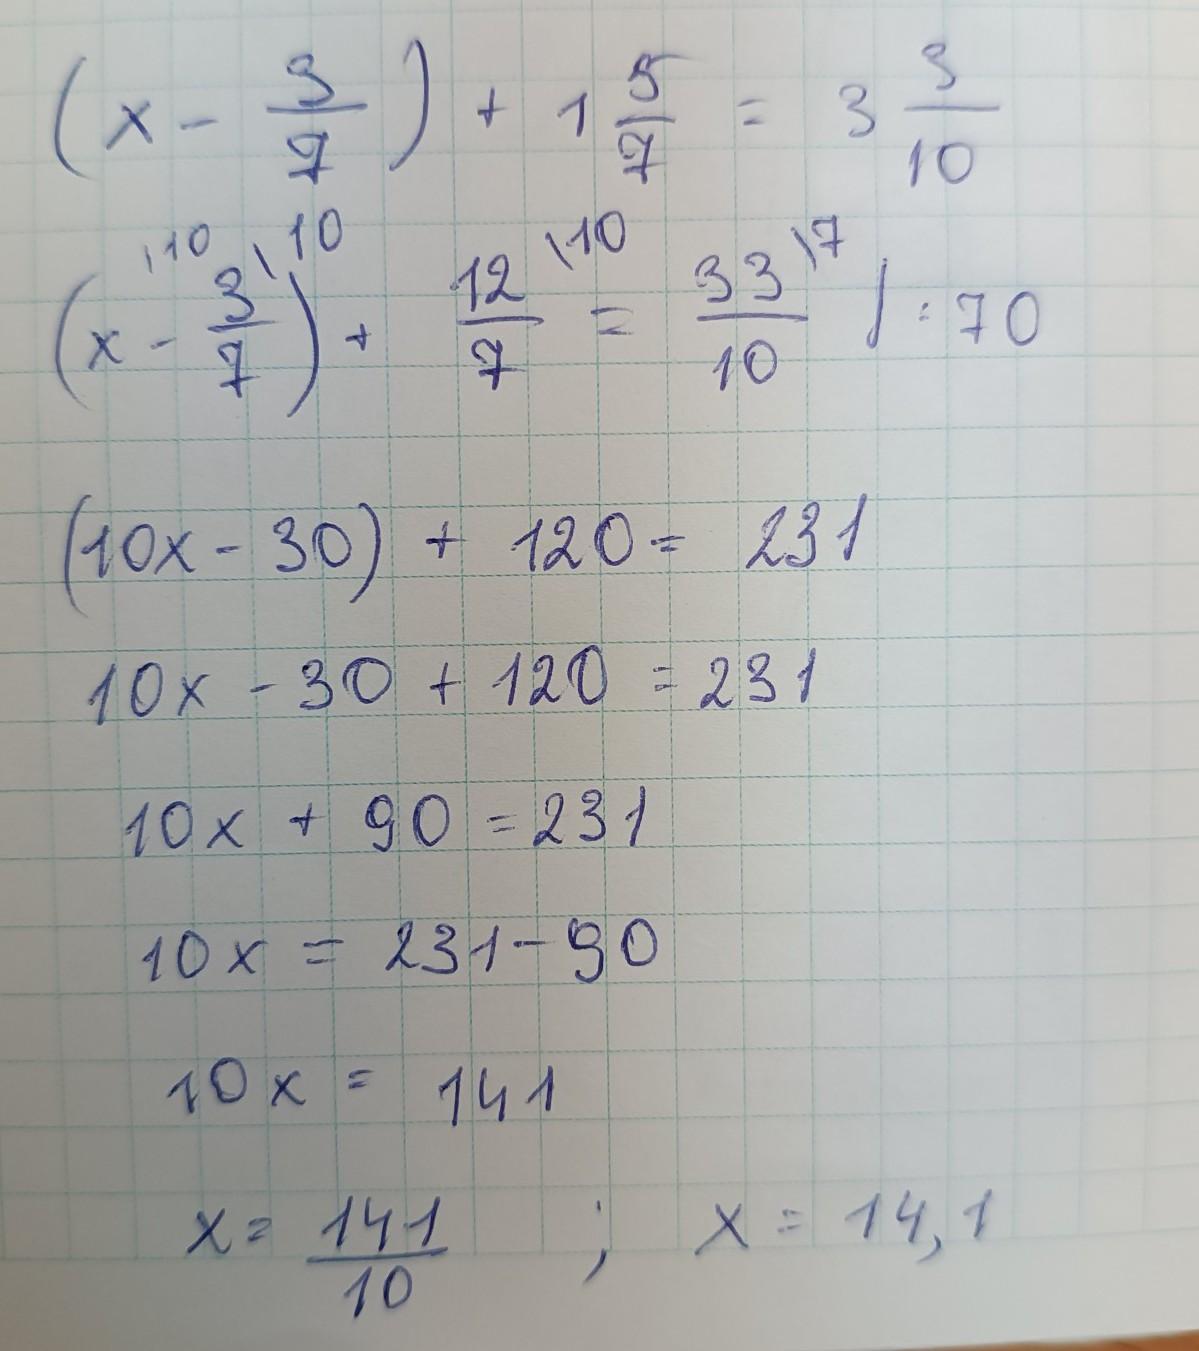 (x - 3/7) + 1 5/7 = 3 3/10
(x\10 - 3/7\10) + 12/7\10 = 33/10\7 / : 70
(10x - 30) + 120 = 231
10x - 30 + 120 = 231
10x + 90 = 231
10x = 231 - 90
10x = 141
x = 141/10 ; x = 14,1